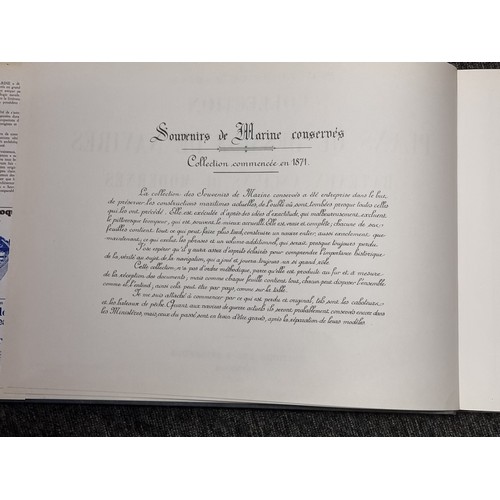 Souvenirs de Marine conservés
Collection commencée en 1871.
La collection des Souvenirs de Marine conservés a été entreprise dans le but
de préserver les constructions maritimes actuelles, de l'oubli où sont tombées presque toutes celles
qui les ont précédé. Elle est exécutée d'après des idées d'exactitude, qui malheureusement, excluent
le pittoresque trompeur, qui est, souvent, le mieux accueilli. Elle est, vraie et complète; chacune de ses
feuilles contient tout ce qui peut, faire plus tard, construire un navire entier, aussi exactement, que
maintenant; ce qui exclut les phrases et un volume additionnel, qui serait, presque toujours perdu.
J'ose espérer qu'il y aura assez d'esprits éclairés pour comprendre l'importance historique
de la vérité au sujet de la navigation, qui a joué et jouera toujours un si grand rôle.
Cette collection n'a pas d'ordre méthodique, parce qu'elle est produite au fur et à mesure
de la réception des documents; mais comme chaque feuille contient tout, chacun peut disposer l'ensemble
comme il l'entend, aussi cela peut être par pays, comme sur la table.
Je me suis attaché à commencer par ce qui est perdu et original, tels sont les caboteurs
et les bateaux de pêche. Quant aux navires de guerre actuels ils seront probablement, conservés encore dans
les Ministères, mais ceux du passé, sont en train d'être gravés, après la réparation de leurs modèles.